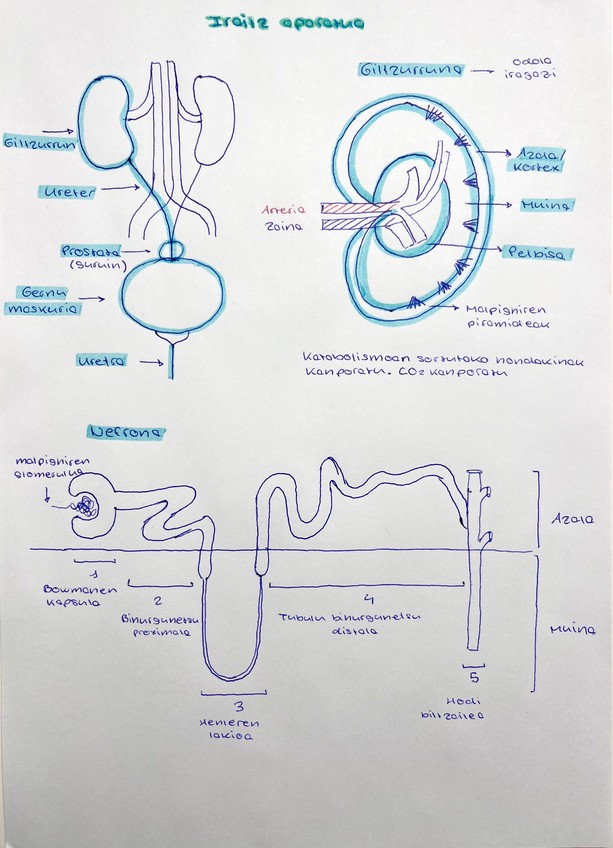 Iraitz aparatua
Giltzurrun
Ureter
Prostata
(Guruin)
Gernu
maskuria
Uretra
Giltzurruna — odola
iragazi
Azala/
Kortex
Muina
Pelbisa
Malpighiren
piramideak
Arteria
Zaina
Katabolismoan sortutako hondakinak
kanporatu. CO2 kanporatu
Nefrona
malpighiren
glomerulua
1
Bowmanen
kapsula
2
Binurgunetsu
proximala
3
Henleren
lakioa
4
Tubulu binurgunetsu
distala
5
Hodi
biltzailea
Azala
Muina